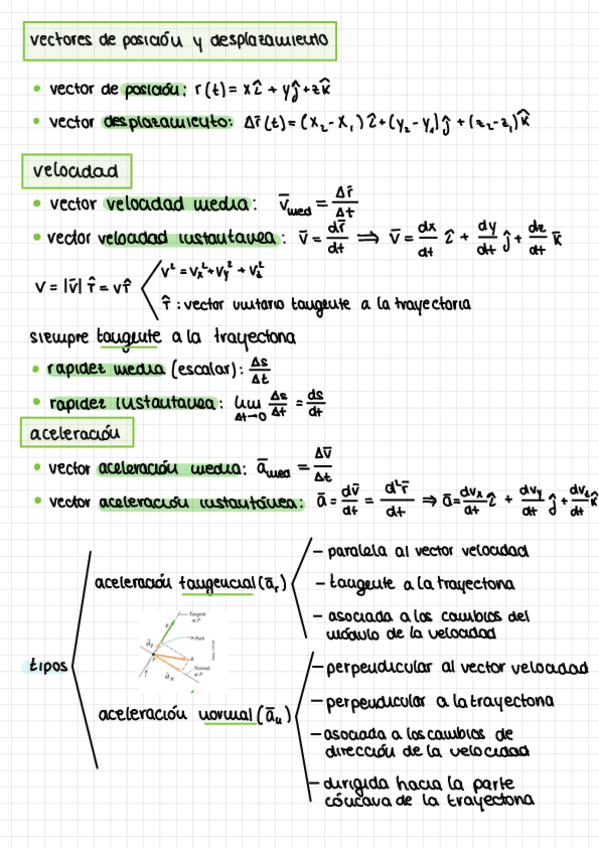 vectores de posición y desplazamiento
• vector de posición: r(t) = xî + yĵ + zk̂
• vector desplazamiento: Δr̄(t) = (x₂ - x₁)î + (y₂ - y₁)ĵ + (z₂ - z₁)k̂
velocidad
• vector velocidad media: v̄med = Δr̄/Δt
• vector velocidad instantanea: v̄ = dr̄/dt ⟹ v̄ = dx/dt î + dy/dt ĵ + dz/dt k̄
v² = vx² + vy² + vz²
v = |v̄| r̂ = v r̂
r̂ : vector unitario tangente a la trayectoria
siempre tangente a la trayectoria
• rapidez media (escalar): Δs/Δt
• rapidez instantanea: lim Δt→0 Δs/Δt = ds/dt
aceleración
• vector aceleración media: āmed = Δv̄/Δt
• vector aceleración instantánea: ā = dv̄/dt = d²r̄/dt ⟹ ā = dvx/dt î + dvy/dt ĵ + dvz/dt k̂
tipos
aceleración tangencial (āτ)
- paralela al vector velocidad
- tangente a la trayectoria
- asociada a los cambios del
módulo de la velocidad
Tangent
at P
Path
Normal
at P
aceleración normal (āₙ)
- perpendicular al vector velocidad
- perpendicular a la trayectoria
- asociada a los cambios de
dirección de la velocidad
- dirigida hacia la parte
cóncava de la trayectoria